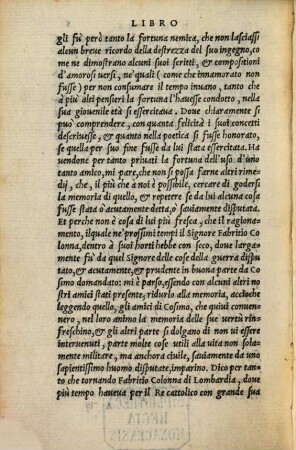 LIBRO
gli fu però tanto la fortuna nemica, che non lasciassi
alcun breve ricordo della destrezza del suo ingegno, co
me ne dimostrano alcuni suoi scritti, & compositioni
d'amorosi versi, ne'quali (come che innamorato non
fusse) per non consumare il tempo invano, tanto che
à più alti pensieri la fortuna l'havesse condotto, nella
sua giovenile età si essercitava. Dove chiaramente si
puo comprendere, con quanta felicità i suoi concetti
descrivesse, & quanto nella poetica si fusse honorato,
se quella per suo fine fusse da lui stata essercitata. Ha
vendone per tanto privati la fortuna dell'uso d'uno
tanto amico, mi pare, che non si possa farne altri rime=
dij, che il più, che a noi è possibile, cercare di godersi
la memoria di quello, & repetere se da lui alcuna cosa
fusse stata o acutamente detta, o saviamente disputata.
Et perche non è cosa di lui più fresca, che il ragiona=
mento, ilquale ne'prossimi tempi il Signore Fabritio Co
lonna, dentro à suoi horti hebbe con seco, dove larga
mente fu da quel Signore delle cose della guerra dispu
tato, & acutamente, & prudente in buona parte da Co
simo domandato: mi è parso, essendo con alcuni altri no
stri amici stati presente, ridurlo alla memoria, accioche
leggendo quello, gli amici di Cosimo, che quivi convene
nero, nel loro animo la memoria delle sue vertù rin=
freschino, & gli altri parte si dolgano di non vi essere
intervenuti, parte molte cose utili alla vita non sola=
mente militare, ma anchora civile, saviamente da uno
sapientissimo huomo disputate, imparino. Dico per tan
to che tornando Fabritio Colonna di Lombardia, dove
più tempo haveva per il Re cattolico con grande sua
REGIA
MONACENSIS